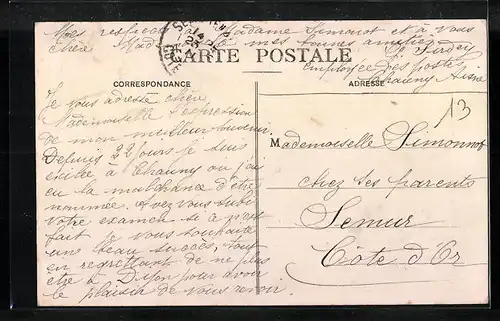 Mes respectueux Madame Simonot et à vous
chère Mad mes bonnes amitiés
employée des postes
Chauny Aisne
CARTE POSTALE
CORRESPONDANCE
ADRESSE
13
Je vous adresse chère
Mademoiselle l'expression
de mon meilleur souvenir.
Depuis 22 jours je suis
exilée à Chauny où j'ai
eu la malchance d'être
nommée. Avez vous subi
votre examen si c'est
fait je vous souhaite
un beau succès, tout
en regrettant de ne plus
être à Dijon pour avoir
le plaisir de vous revoir.
Mademoiselle Simonnot
chez ses parents
Semur
Côte d'Or